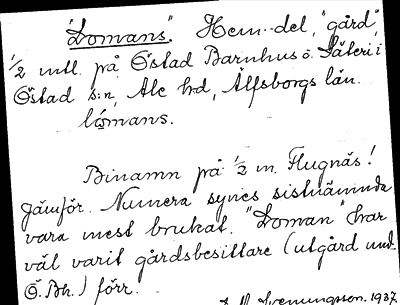 "Lomans". Hem.-del, "gård",
1/2 mtl. på Östad Barnhus o. Säteri i
Östad s:n, Ale h:d, Älfsborgs län.
lómans.
Binamn på 1/2 m. Flugnäs!
Jämför. Numera synes sistnämnda
vara mest brukat. "Loman" har
väl varit gårdsbesittare (utgård und.
Ö. Bh.) förr.
Hemmingson. 1937.